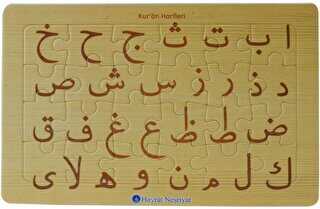 Kur'ân Harfleri
ا ب ت ث ج ح خ
د ذ ر ز س ش ص
ض ط ظ ع غ ف ق
ك ل م ن و ه لا ى
Hayrat Neşriyat